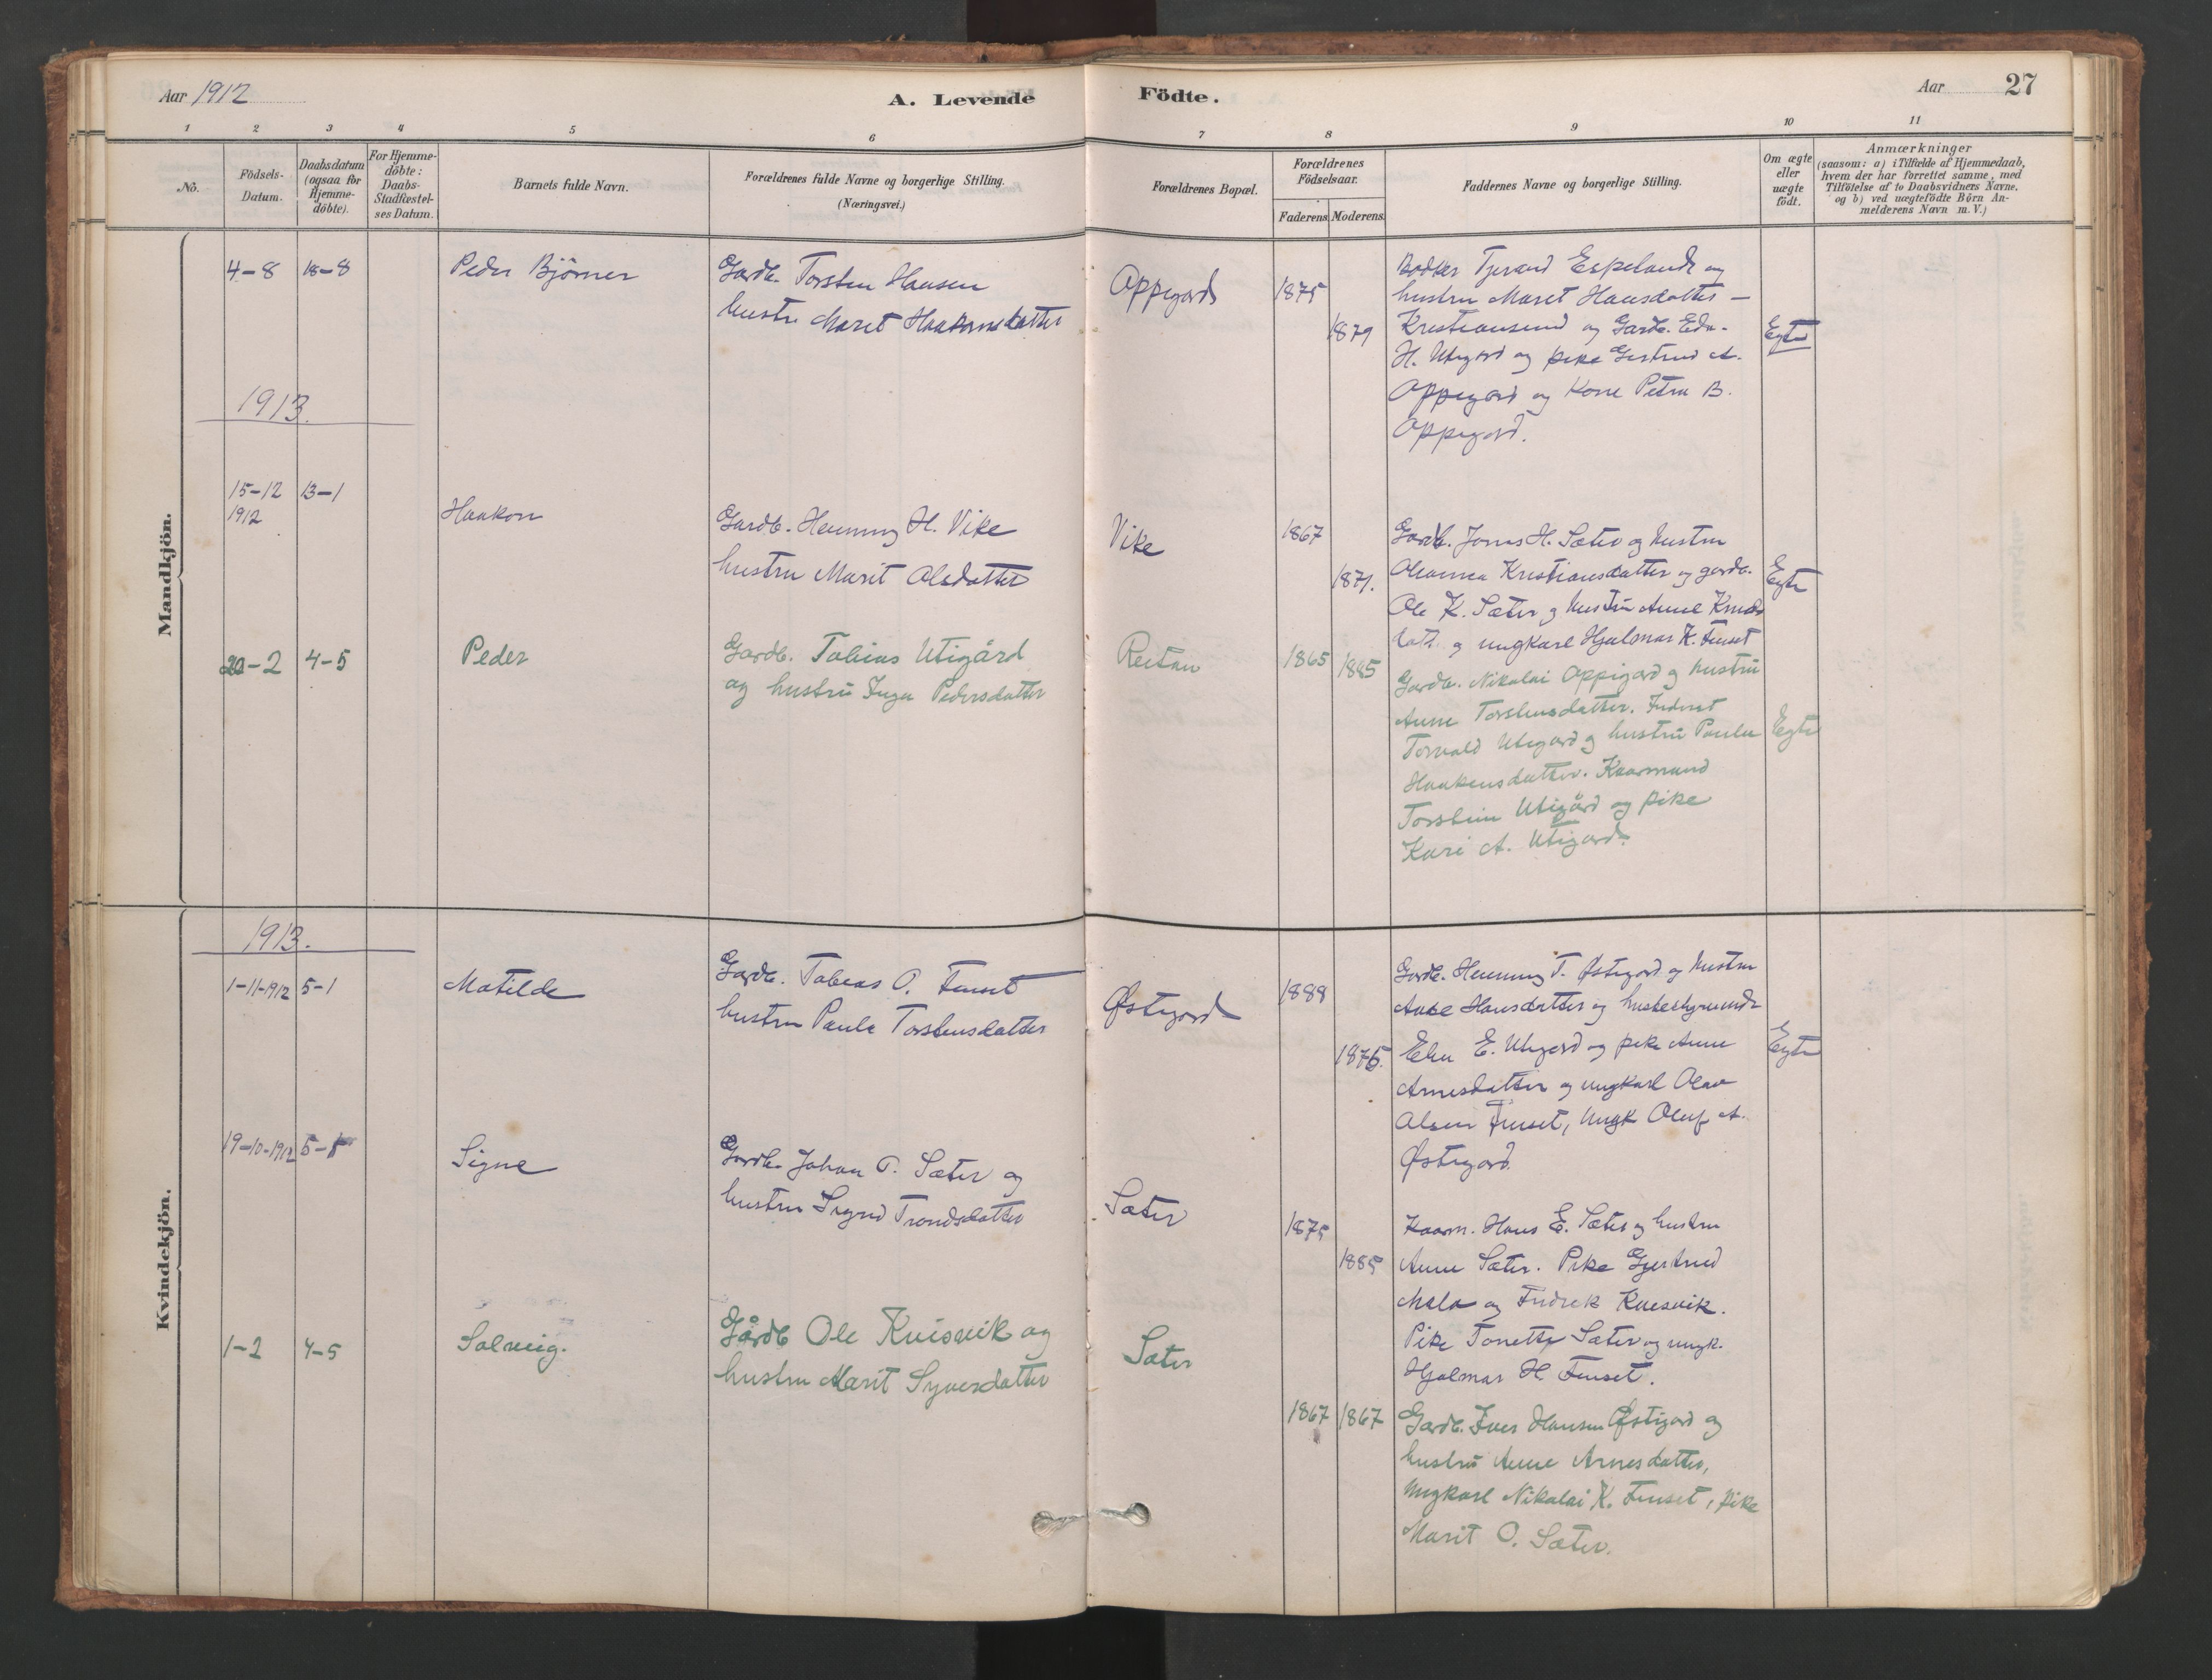 Aar 1912
A. Levende
Födte.
Aar
27
1
2
3
4
5
6
7
8
9
10
11
No.
Födsels-
Datum.
Daabsdatum
(ogsaa for
Hjemme-
döbte).
For Hjemme-
döbte:
Daabs-
Stadfæstel-
ses Datum.
Barnets fulde Navn.
Forældrenes fulde Navne og borgerlige Stilling.
(Næringsvei.)
Forældrenes Bopæl.
Forældrenes
Födselsaar.
Faderens
Moderens.
Faddernes Navne og borgerlige Stilling.
Om ægte
eller
uægte
födt.
Anmærkninger
(saasom: a) i Tilfælde af Hjemmedaab,
hvem der har forrettet samme, med
Tilföielse af to Daabsvidners Navne.
og b) ved uægtefödte Börn An-
melderens Navn m. V.)
Mandkjön.
4-8
18-8
Peder Björner
Gardb. Torsten Hansen
hustru Maret Haakonsdatter
Oppigard
1875
1879
Bödker Tjerand Espelands og
hustru Maret Hansdatter -
Kristiansund og Gardb. Edv.
H. Utigard og pike Gertrud A.
Oppigard og Kone Petra B.
Oppigard.
Egte
1913.
15-12
1912
13-1
Haakon
Gardb. Henning H. Vike
hustru Marit Olsdatter
Vike
1867
1871.
Gardb. Jonas H. Sæter og hustru
Oleanna Kristiansdatter og gardb.
Ole K. Sæter og hustru Anne Knuds
datt. og ungkarl Hjalmar K. Fuset
Egte
20-2
4-5
Peder
Gardb. Tobias Utigård
og hustrü Inga Pedersdatter
Reitan
1865
1885
Gardb. Nikolai Oppigard og hustrü
Anne Torstensdatter. Inderst
Torvald Utigard og hustrü Paula
Haakensdatter. Kaarmand
Torstein Utigård og pike
Kari A. Utigard.
Egte
Kvindekjön.
1913.
1-11-1912
5-1
Matilde
Gardb. Tobias O. Fuset
hustru Paula Torstensdatter
Østigard
1888
1876.
Gardb. Henning T. Østigard og hustru
Anne Hansdatter og husbestyrerinde
Elen E. Utigard og pike Anne
Arnesdatter og ungkarl Olav
Olsen Fuset, ungk Oluf A.
Østigard.
Egte
19-10-1912
5-1
Signe
Gardb. Johan P. Sæter og
hustru Sigrid Trondsdatter
Sæter
1875
1885
Kaarm. Hans E. Sæter og hustru
Anne Sæter. Pike Gjertrud
Mela og Fredrik Kvisvik.
Pike Tonette Sæter og ungk.
Hjalmar H Fuset.
1-2
4-5
Solveig.
Gårdb Ole Kvisvik og
hustru Marit Syversdatter
Sæter
1867
1867
Gardb. Iver Hansen Østigard og
hustrü Anne Arnesdatter,
Ungkarl Nikolai K. Fuset, pike
Marit O. Sæter.